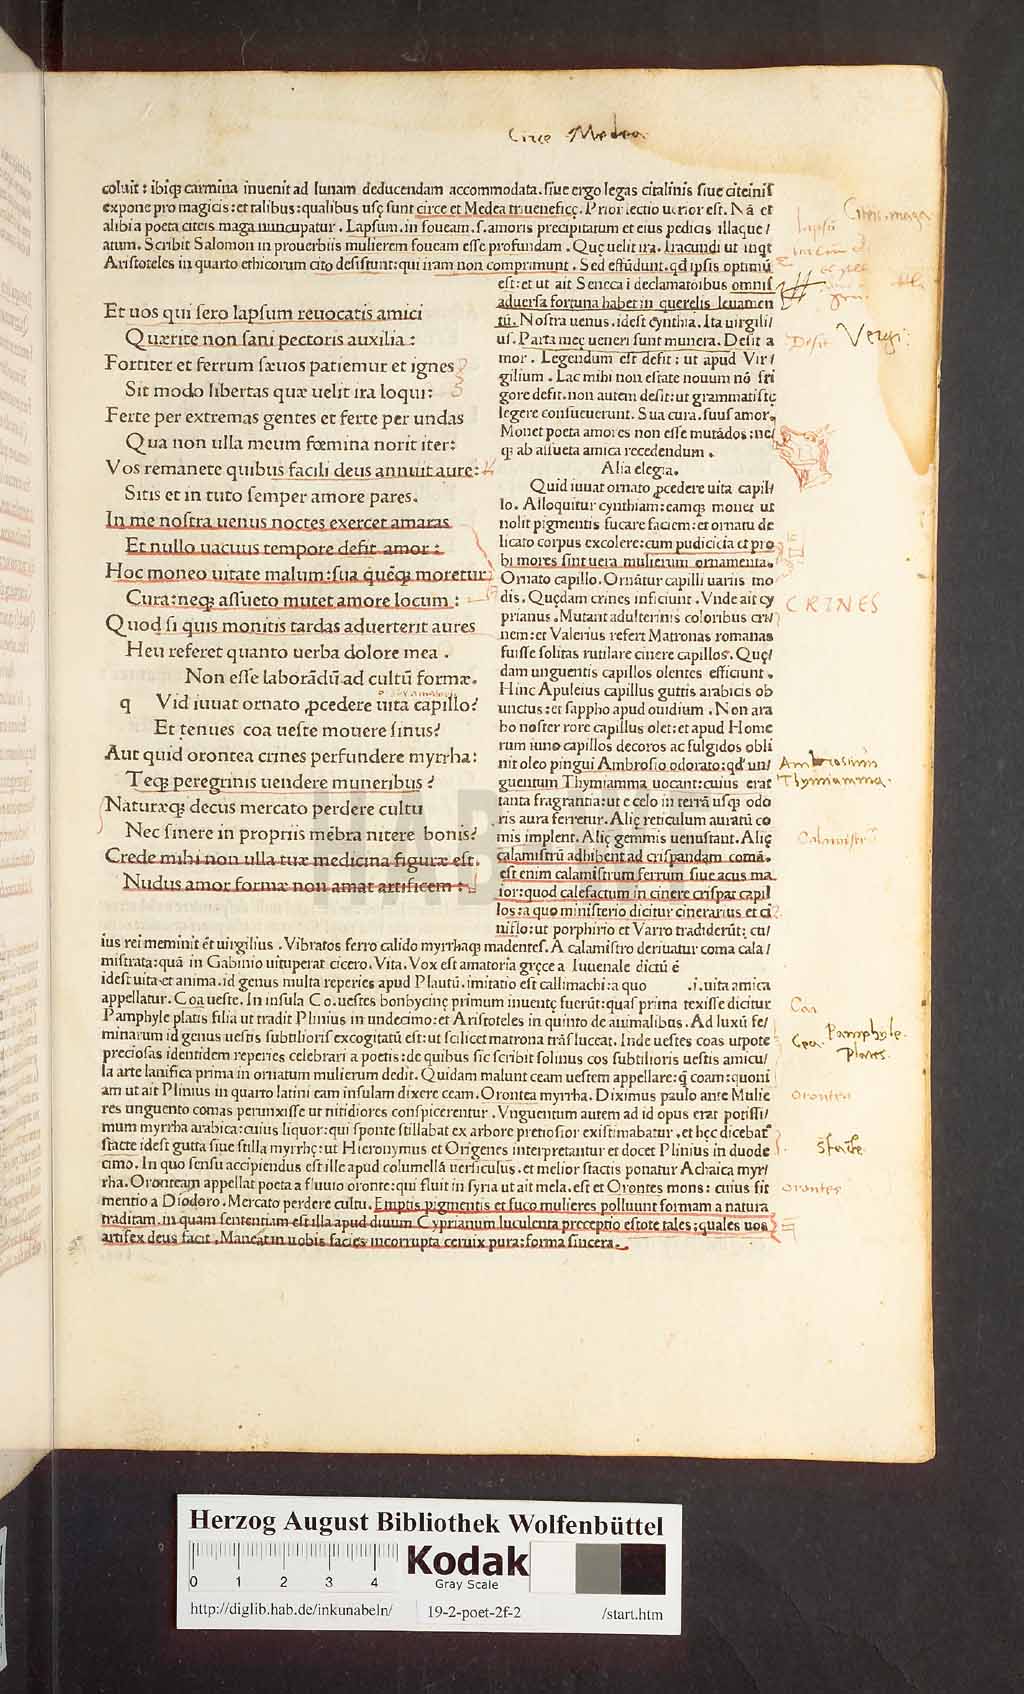 Circe Medea
coluit : ibiq; carmina inuenit ad lunam deducendam accommodata. siue ergo legas citalinis siue citeinis
expone pro magicis: et talibus: qualibus usę sunt circe et Medea trueneficę. Prior lectio uerior est. Nā et
alibi a poeta citeis maga nuncupatur . Lapsum. in foueam. s. amoris precipitatum et eius pedicis illaque/
atum. Scribit Salomon in prouerbiis mulierem foueam esse profundam . Quę uelit ira. Iracundi ut inqt
Aristoteles in quarto ethicorum cito desistunt: qui iram non comprimunt . Sed effūdunt. qd ipsis optimū
est: et ut ait Seneca i declamatoibus omnis
aduersa fortuna habet in querelis leuamen
tū. Nostra uenus. idest cynthia. Ita uirgili/
us. Parta meę ueneri sunt munera. Desit a
mor. Legendum est defit: ut apud Vir/
gilium . Lac mihi non estate nouum nō fri
gore defit. non autem desit: ut grammatistę
legere consueuerunt. Sua cura. suus amor.
Monet poeta amores non esse mutādos: ne/
q; ab assueta amica recedendum .
Et uos qui sero lapsum reuocatis amici
Quærite non sani pectoris auxilia :
Fortiter et ferrum sæuos patiemur et ignes
Sit modo libertas quæ uelit ira loqui:
Ferte per extremas gentes et ferte per undas
Qua non ulla meum fœmina norit iter:
Vos remanete quibus facili deus annuit aure:
Sitis et in tuto semper amore pares.
In me nostra uenus noctes exercet amaras
Et nullo uacuus tempore defit amor :
Hoc moneo uitate malum: sua quēq; moretur
Cura: neq; assueto mutet amore locum :
Quod si quis monitis tardas aduerterit aures
Heu referet quanto uerba dolore mea .
Non esse laborādū ad cultū formæ.
q Vid iuuat ornato ꝓcedere uita capillo?
Et tenues coa ueste mouere sinus?
Aut quid orontea crines perfundere myrrha:
Teq; peregrinis uendere muneribus ?
Naturæq; decus mercato perdere cultu
Nec sinere in propriis mēbra nitere bonis?
Crede mihi non ulla tuæ medicina figuræ est.
Nudus amor formæ non amat artificem :
Alia elegia.
Quid iuuat ornato ꝓcedere uita capil/
lo. Alloquitur cynthiam: eamq; monet ut
nolit pigmentis fucare faciem: et ornatu de
licato corpus excolere: cum pudicicia et pro
bi mores sint uera mulierum ornamenta.
Ornato capillo. Ornātur capilli uariis mo
dis. Quędam crines inficiunt. Vnde ait cy
prianus. Mutant adulterinis coloribus cri/
nem: et Valerius refert Matronas romanas
fuisse solitas rutilare cinere capillos. Quę/
dam unguentis capillos olentes efficiunt.
Hinc Apuleius capillus guttis arabicis ob
unctus: et sappho apud ouidium . Non ara
bo noster rore capillus olet: et apud Home
rum iuno capillos decoros ac fulgidos obli
nit oleo pingui Ambrosio odorato: qd un/
guentum Thymiamma uocant: cuius erat
tanta fragrantia: ut e celo in terrā usq; odo
ris aura ferretur. Alię reticulum auratū co
mis implent. Alię gemmis uenustant. Alię
calamistrū adhibent ad crispandam comā.
est enim calamistrum ferrum siue acus ma
ior: quod calefactum in cinere crispat capil
los: a quo ministerio dicitur cinerarius et ci
niflo: ut porphirio et Varro tradiderūt: cu/
ius rei meminit ēt uirgilius . Vibratos ferro calido myrrhaq; madentes. A calamistro deriuatur coma cala/
mistrata: quā in Gabinio uituperat cicero. Vita. Vox est amatoria gręce a Iuuenale dictū ē
idest uita et anima. id genus multa reperies apud Plautū. imitatio est callimachi: a quo .i. uita amica
appellatur. Coa ueste. In insula Co. uestes bonbycinę primum inuentę fuerūt: quas prima texisse dicitur
Pamphyle platis filia ut tradit Plinius in undecimo: et Aristoteles in quinto de animalibus. Ad luxū fe/
minarum id genus uestis subtilioris excogitatū est: ut scilicet matrona trāsluceat. Inde uestes coas utpote
preciosas identidem reperies celebrari a poetis: de quibus sic scribit solinus cos subtilioris uestis amicu/
la arte lanifica prima in ornatum mulierum dedit. Quidam malunt ceam uestem appellare: q̄ coam: quoni
am ut ait Plinius in quarto latini eam insulam dixere ceam. Orontea myrrha. Diximus paulo ante Mulie
res unguento comas perunxisse ut nitidiores conspicerentur . Vnguentum autem ad id opus erat potissi/
mum myrrha arabica: cuius liquor: qui sponte stillabat ex arbore pretiosior existimabatur. et hęc dicebat
stacte idest gutta siue stilla myrrhę: ut Hieronymus et Origenes interpretantur et docet Plinius in duode
cimo. In quo sensu accipiendus est ille apud columellā uersiculus. et melior stactis ponatur Achaica myr/
rha. Oronteam appellat poeta a fluuio oronte: qui fluit in syria ut ait mela. est et Orontes mons: cuius fit
mentio a Diodoro. Mercato perdere cultu. Emptis pigmentis et fuco mulieres polluunt formam a natura
traditam. in quam sententiam est illa apud diuum Cyprianum luculenta preceptio estote tales: quales uos
artifex deus facit. Maneāt in uobis facies incorrupta ceruix pura: forma sincera.
Citeis. maga
Lapsū
Desit Vergi:
CRINES
Ambrosium
Thymiamma.
Calamistrū
Coa
Cea. Pamphyle.
Plates.
Orontea
Stacte.
Orontes
HAB
Herzog August Bibliothek Wolfenbüttel
0 1 2 3 4
Kodak
Gray Scale
http://diglib.hab.de/inkunabeln/ 19-2-poet-2f-2 /start.htm